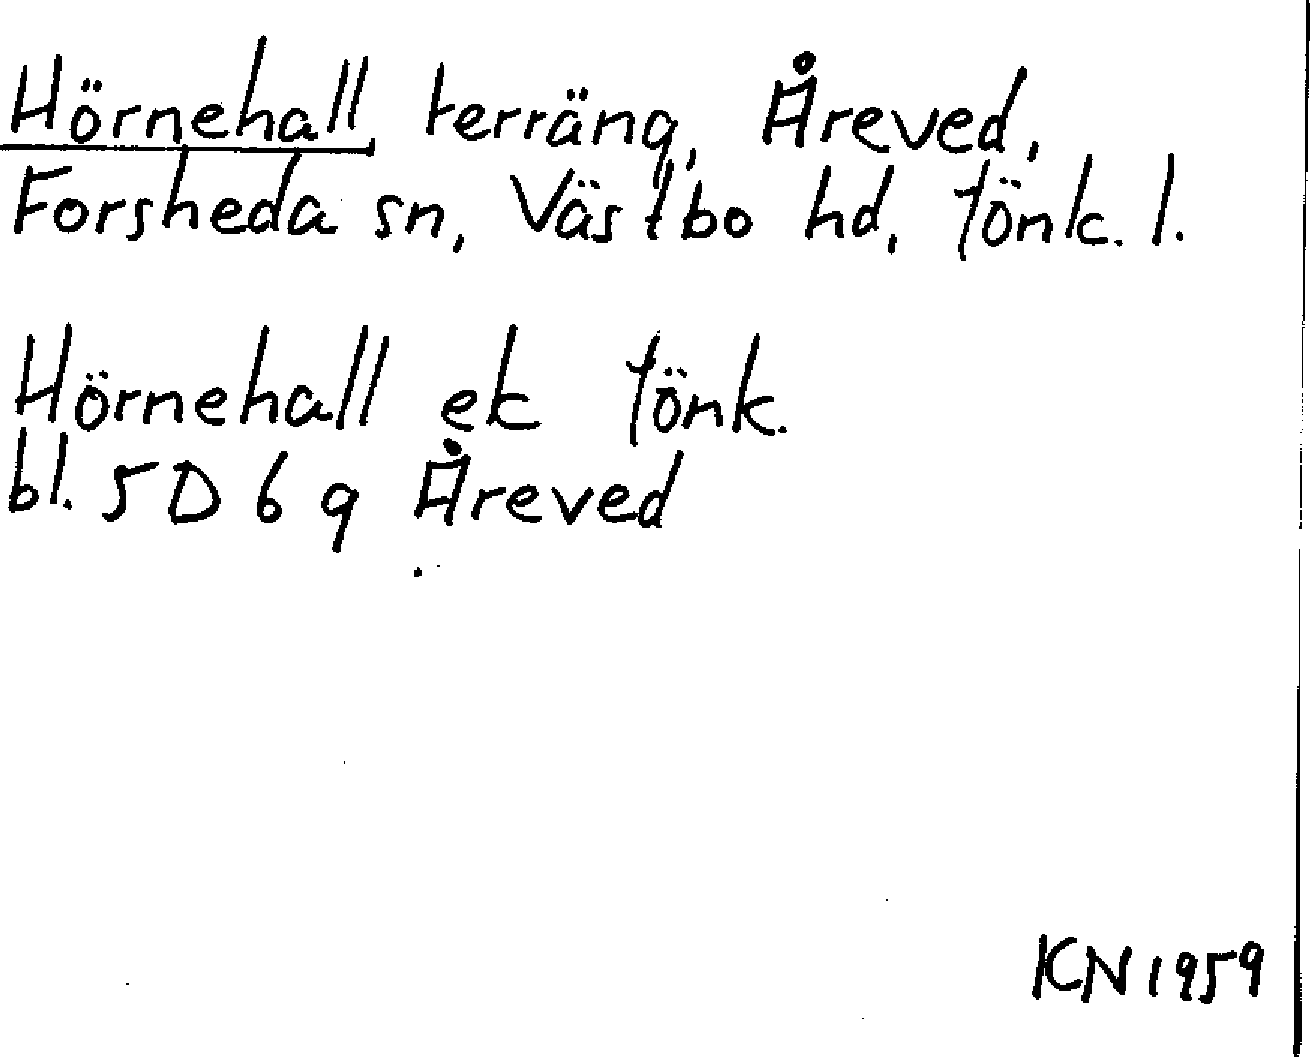 Hörnehall, terräng, Åreved,
Forsheda sn, Västbo hd, Jönk. l.
Hörnehall ek Jönk.
bl. 5D 6 g Åreved
KN 1959